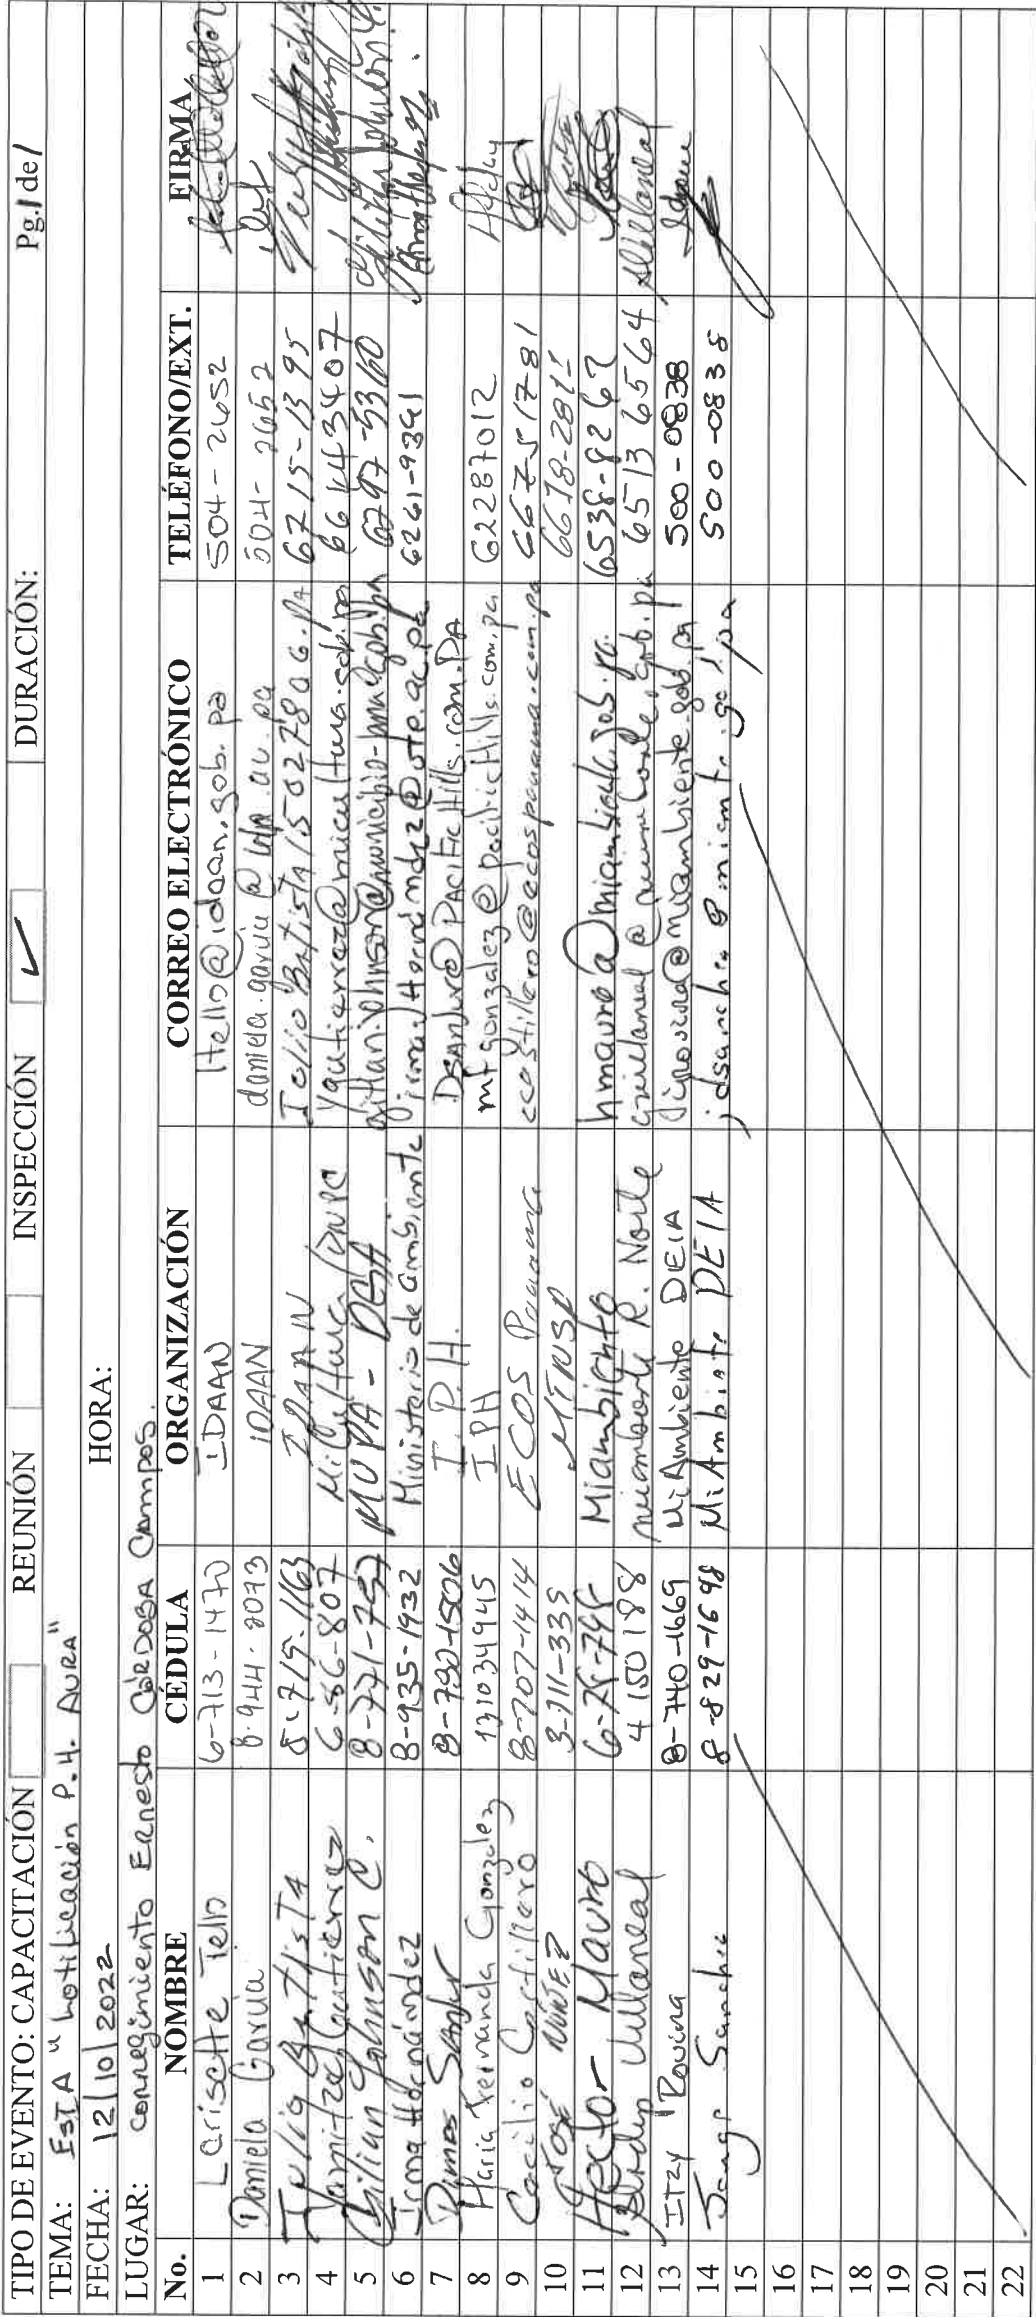 TIPO DE EVENTO: CAPACITACIÓN REUNIÓN INSPECCIÓN ✓ DURACIÓN: Pg. 1 de 1
TEMA: EsIA "Lotificación P.H. AURA"
FECHA: 12/10/2022 HORA:
LUGAR: corregimiento Ernesto Córdoba Campos.
No. NOMBRE CÉDULA ORGANIZACIÓN CORREO ELECTRÓNICO TELÉFONO/EXT. FIRMA
1 Larisette Tello 6-713-1470 IDAAN ltello@idaan.gob.pa 504-2652
2 Daniela García 8-944-2073 IDAAN 504-2652
3 Batista 8-715-1163 IDAAN 6715-1395
4 Yamitza Gutiérrez 6-86-807 MiCultura/DNPC ygutierrez@micultura.gob.pa 66443407
5 Gilian Johnson C. 8-771-757 MUPA - DGA
6 Irma Hernández 8-935-1932 Ministerio de Ambiente irma.hernandez2@utp.ac.pa 6261-9391
7 Dimas 8-730-1506 I.P.H. @PacificHills.com.PA
8 María Fernanda González 131034945 IPH mfgonzalez@pacifichills.com.pa 62287012
9 Cecilio Castillero 8-707-1414 ECOS Panamá cecastillero@ecospanama.com.pa 6675-1781
10 José Núñez 3-711-335 6678-2811
11 Hector Mauro 6-75-745 Miambiente hmauro@miambiente.gob.pa 6538-8267
12 Villarreal 4 150 188 miambiente R. Norte 6513 6564
13 Itzy Rovira 8-740-1669 MiAmbiente DEIA @miambiente.gob.pa 500-0838
14 Sanchez 8-829-1698 MiAmbiente DEIA 500-0838
15
16
17
18
19
20
21
22